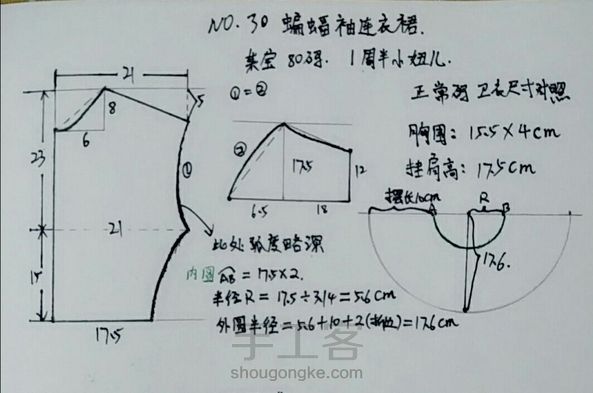 NO.30 蝙蝠袖连衣裙.
亲宝80码. 1周半小妞儿.
①=②
正常码 卫衣尺寸对照
胸围: 15.5×4cm
挂肩高: 17.5cm
21
8
5
6
23
①
21
15
17.5
②
17.5
12
6.5
18
摆长10cm
A
R
B
17.6.
此处弧度略深
内圆AB=17.5×2.
半径R=17.5÷3.14=5.6cm
外圆半径=5.6+10+2(折边)=17.6cm
手工客
shougongke.com